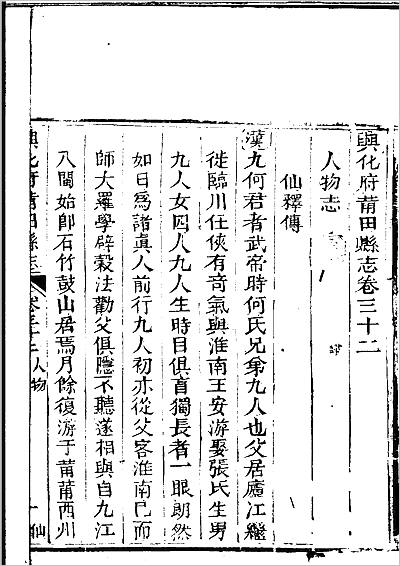 興化府莆田縣志卷三十二
人物志
仙釋傳
漢九何君者武帝時何氏兄弟九人也父居廬江繼
徙臨川任俠有奇氣與淮南王安游娶張氏生男
九人女四人九人生時目俱盲獨長者一眼朗然
如日爲諸眞人前行九人初亦從父客淮南已而
師大羅學辟穀法勸父俱隱不聽遂相與自九江
入閩始卽石竹鼓山居焉月餘復游于莆莆西州
興化府莆田縣志
卷三十二人物
一仙